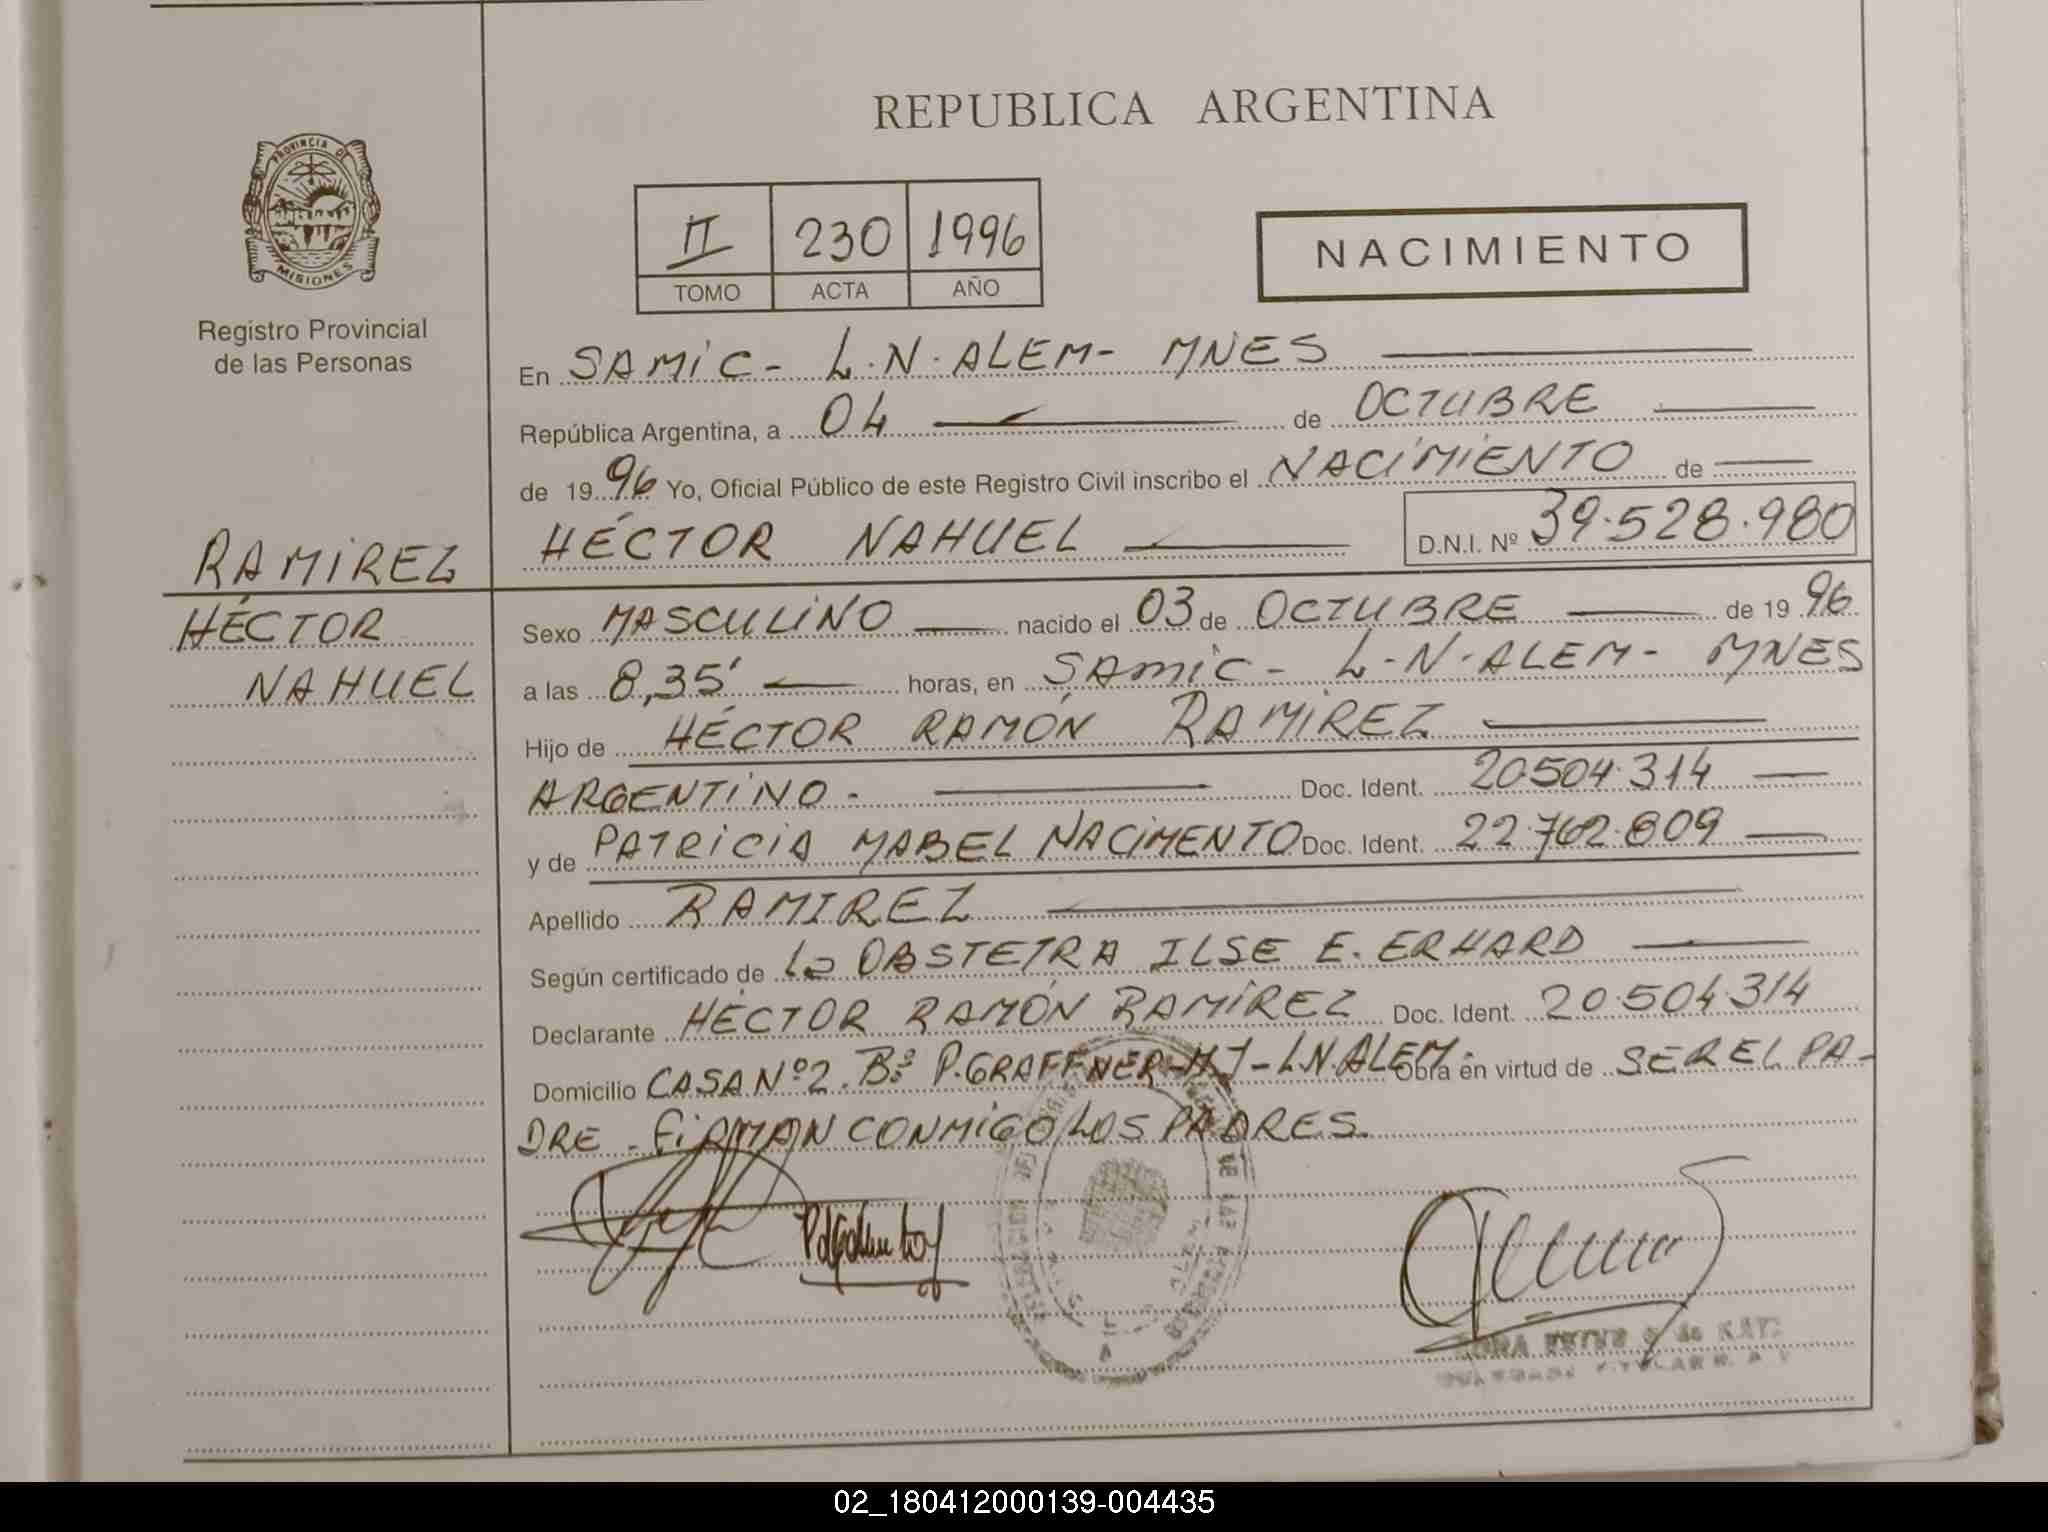 REPUBLICA ARGENTINA
PROVINCIA DE
MISIONES
Registro Provincial
de las Personas
II 230 1996
TOMO ACTA AÑO
NACIMIENTO
En SAMIC - L.N. ALEM - MNES
República Argentina, a 04 de OCTUBRE
de 1996 Yo, Oficial Público de este Registro Civil inscribo el NACIMIENTO de
HÉCTOR NAHUEL D.N.I. Nº 39.528.980
RAMIREZ
HÉCTOR
NAHUEL
Sexo MASCULINO nacido el 03 de OCTUBRE de 1996
a las 8,35' horas, en SAMIC - L.N. ALEM - MNES
Hijo de HÉCTOR RAMÓN RAMIREZ
ARGENTINO. Doc. Ident. 20.504.314
y de PATRICIA MABEL NACIMENTO Doc. Ident. 22.762.809
Apellido RAMIREZ
Según certificado de la OBSTETRA ILSE E. ERHARD
Declarante HÉCTOR RAMÓN RAMÍREZ Doc. Ident. 20.504.314
Domicilio CASA Nº 2. Bº P. GRAFFNER - - L.N ALEM - Obra en virtud de SER EL PA-
DRE - FIRMAN CONMIGO LOS PADRES.
02_180412000139-004435